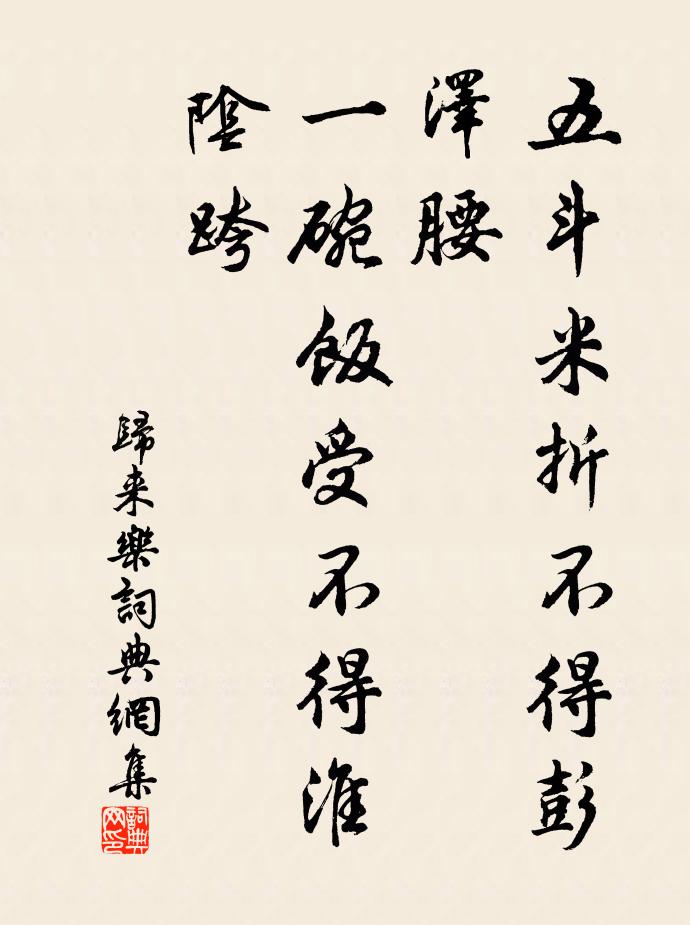 五斗米折不得彭
澤腰
一碗飯受不得淮
陰跨
歸来樂詞典網集
詞典網印